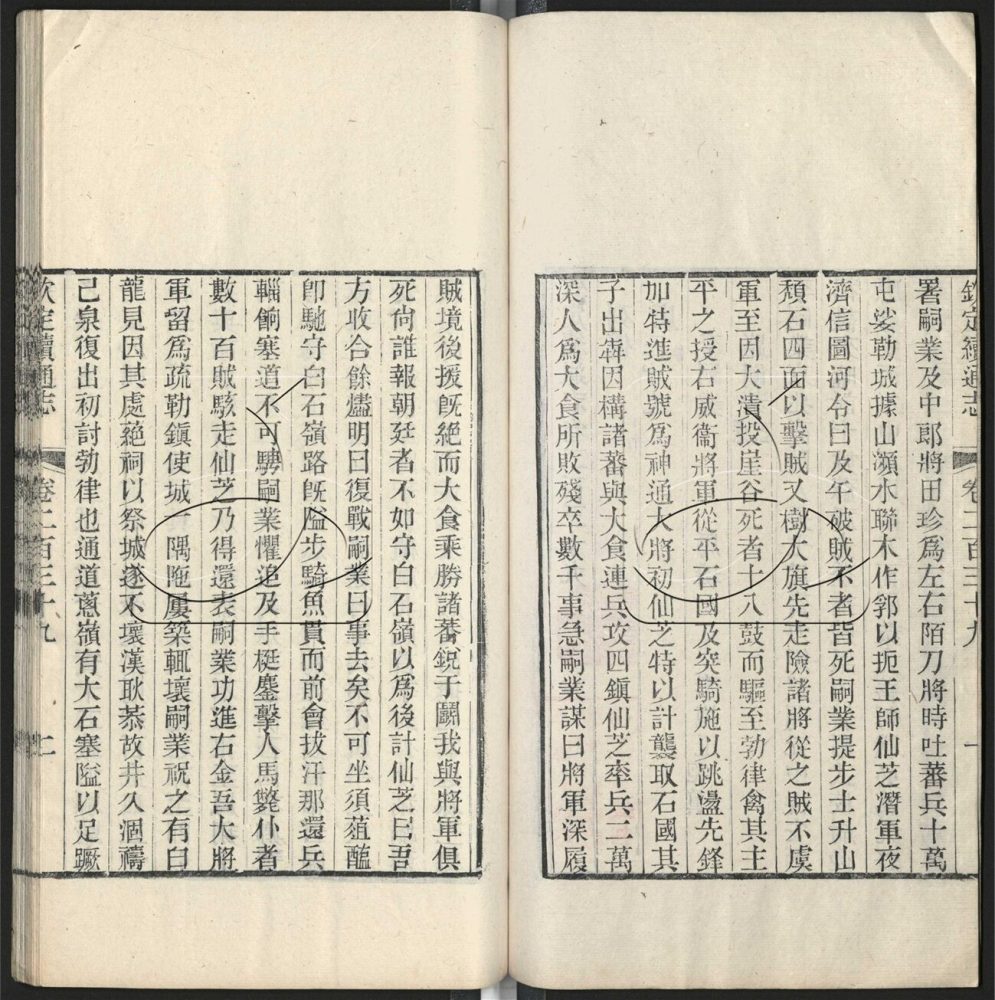 欽定續通志 卷二百三十九 一
署嗣業及中郎將田珍爲左右陌刀將時吐蕃兵十萬
屯娑勒城據山瀕水聯木作郛以扼王師仙芝潛軍夜
濟信圖河令曰及午破賊不者皆死嗣業提步士升山
頹石四面以擊賊又樹大旗先走險諸將從之賊不虞
軍至因大潰投崖谷死者十八鼓而驅至勃律禽其主
平之授右威衞將軍從平石國及突騎施以跳盪先鋒
加特進賊號爲神通大將初仙芝特以計襲取石國其
子出犇因構諸蕃與大食連兵攻四鎭仙芝率兵二萬
深人爲大食所敗殘卒數千事急嗣業謀曰將軍深履
賊境後援旣絶而大食乘勝諸蕃銳于鬬我與將軍俱
死尙誰報朝廷者不如守白石嶺以爲後計仙芝曰吾
方收合餘燼明日復戰嗣業曰事去矣不可坐須葅醢
卽馳守白石嶺路旣隘步騎魚貫而前會拔汗那還兵
輜餉塞道不可騁嗣業懼追及手梃鏖擊人馬斃仆者
數十百賊駭走仙芝乃得還表嗣業功進右金吾大將
軍留爲疏勒鎭使城一隅阤屢築輒壞嗣業祝之有白
龍見因其處絶祠以祭城遂不壞漢耿恭故井久涸禱
己泉復出初討勃律也通道蔥嶺有大石塞隘以足蹶
欽定續通志 卷二百三十九 二